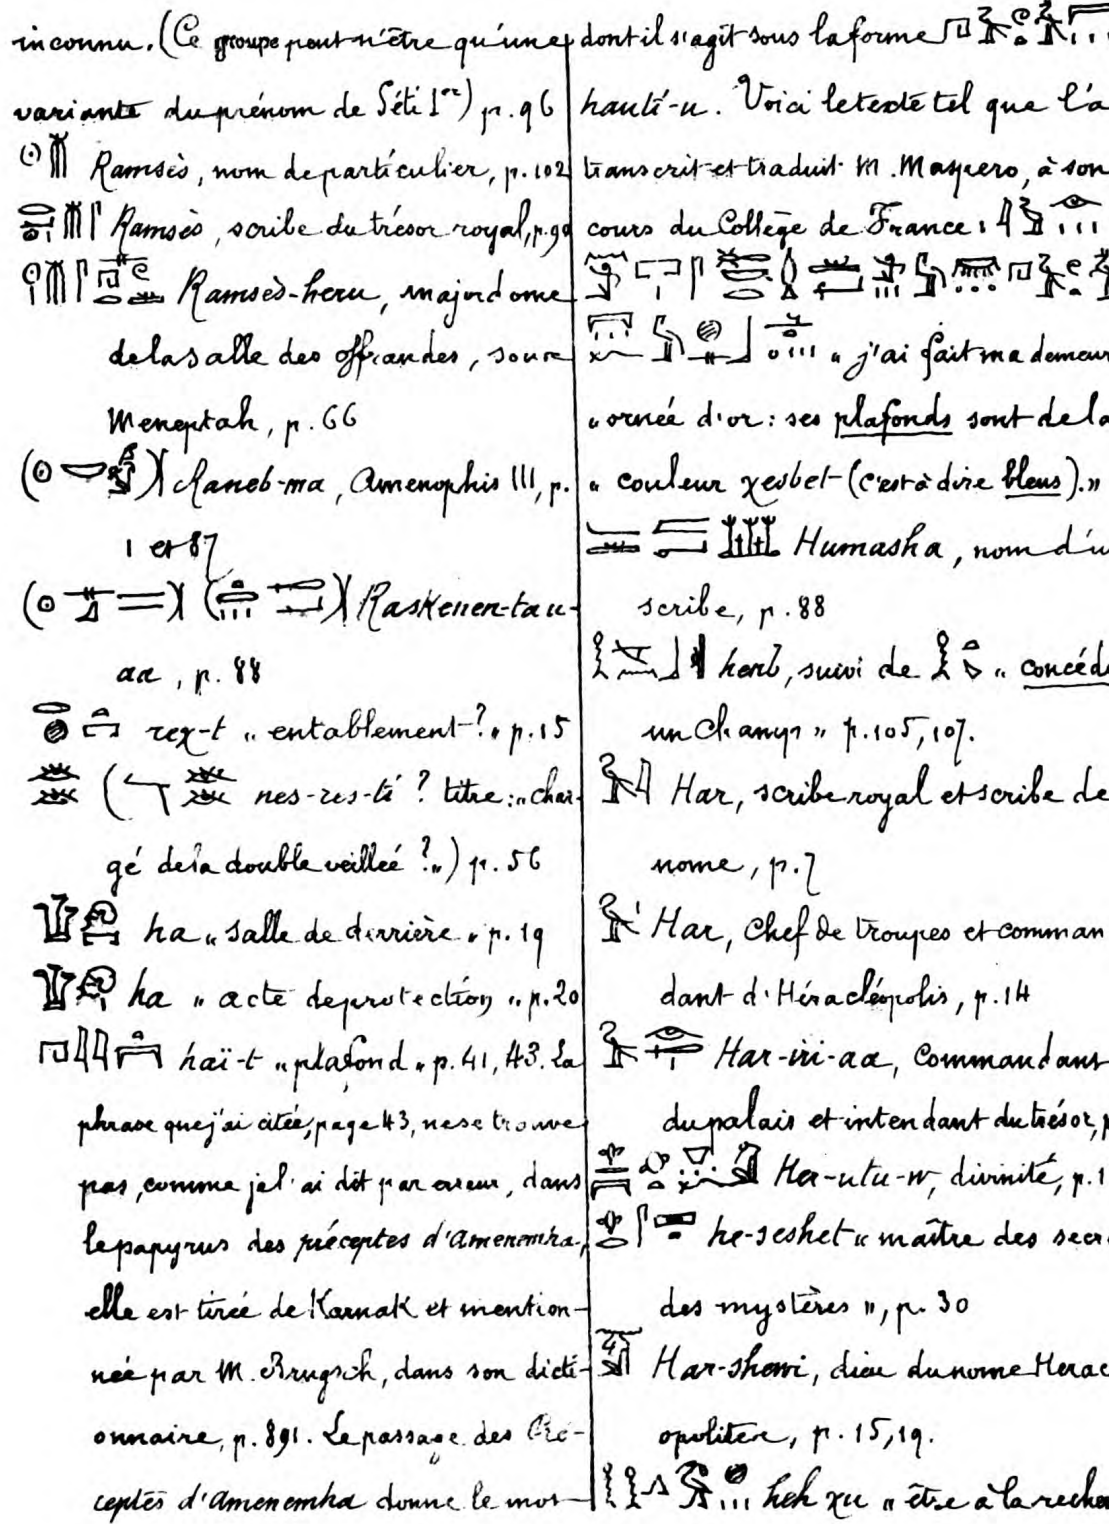 inconnu. (Ce groupe peut n'être qu'une
variante du prénom de Séti Ier) p. 96
Ramsès, nom de particulier, p. 102
Ramsès, scribe du trésor royal, p. 90
Ramsès-heru, majordome
de la salle des offrandes, sous
Meneptah, p. 66
Raneb-ma, Amenophis III, p.
1 et 87
Raskenen-tau-
aa, p. 88
rex-t "entablement?" p. 15
( nes-res-ti? titre: "char-
gé de la double veillée?") p. 56
ha "salle de derrière" p. 19
ha "acte de protection" p. 20
haï-t "plafond" p. 41, 43. La
phrase que j'ai citée, page 43, ne se trouve
pas, comme je l'ai dit par erreur, dans
le papyrus des préceptes d'Amenemha,
elle est tirée de Karnak et mention-
née par M. Brugsch, dans son dicti-
onnaire, p. 891. Le passage des Pré-
ceptes d'Amenemha donne le mot
dont il s'agit sous la forme
hauti-u. Voici le texte tel que l'a
transcrit et traduit M. Maspero, à son
cours du Collège de France:
"j'ai fait ma demeur
"ornée d'or: ses plafonds sont de la
"couleur χesbet (c'est à dire bleus)."
Humasha, nom d'u
scribe, p. 88
henb, suivi de "concéde
un champ" p. 105, 107.
Har, scribe royal et scribe de
nome, p. 7
Har, Chef de troupes et comman
dant d'Héracléopolis, p. 14
Har-iri-aa, Commandant
du palais et intendant du trésor, p
Her-utu-w, divinité, p. 1
he-seshet "maître des secr
des mystères", p. 30
Har-shewi, dieu du nome Herac
opolite, p. 15, 19.
heh χu "être à la reche